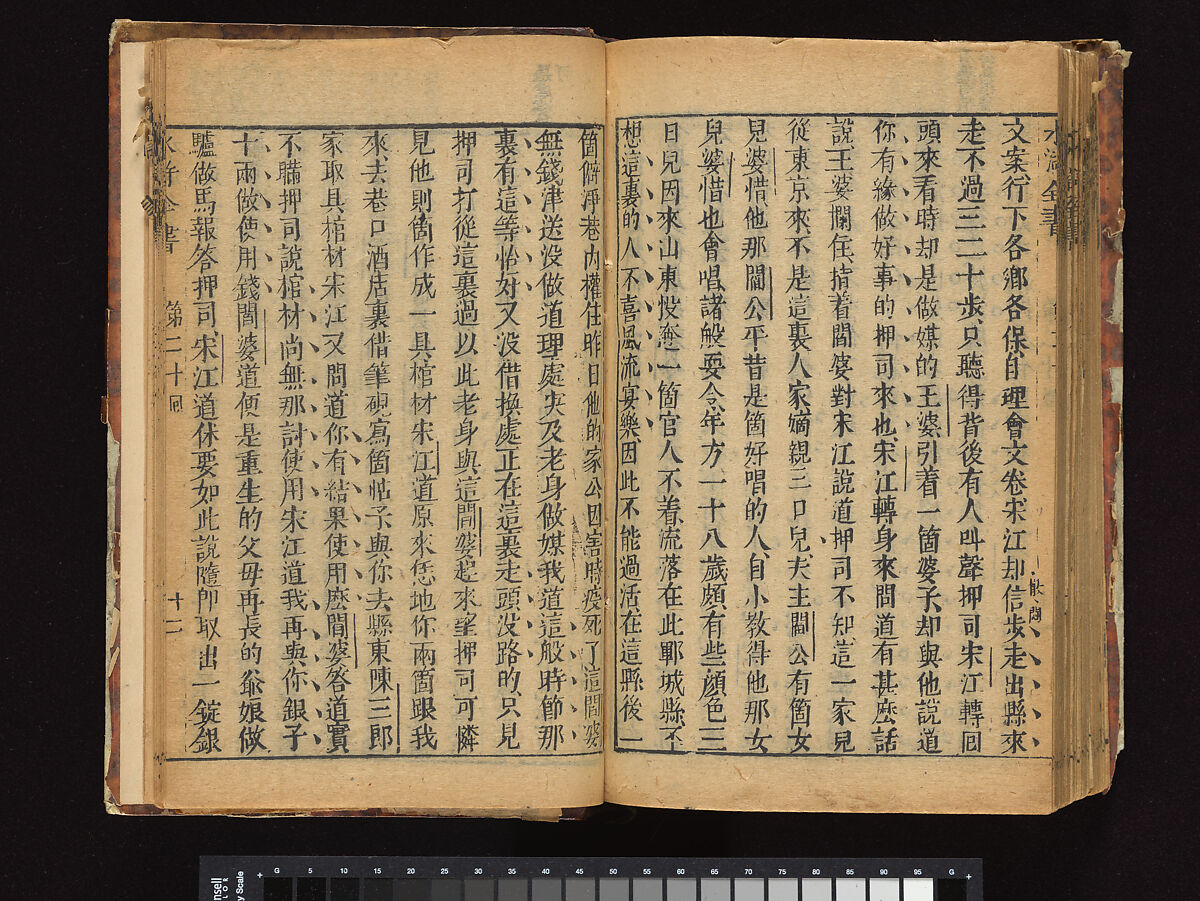 文案行下各鄉各保自理會文卷宋江却信步走出縣來
走不過三二十步只聽得背後有人叫聲押司宋江轉囘
頭來看時却是做媒的王婆引着一箇婆子却與他說道
你有緣做好事的押司來也宋江轉身來問道有甚麼話
說王婆攔住指着閻婆對宋江說道押司不知這一家兒
從東京來不是這裏人家嫡親三口兒夫主閻公有箇女
兒婆惜他那閻公平昔是箇好唱的人自小教得他那女
兒婆惜也會唱諸般耍令年方一十八歲頗有些顏色三
口兒因來山東投奔一箇官人不着流落在此鄆城縣不
想這裏的人不喜風流宴樂因此不能過活在這縣後一
箇僻淨巷內權住昨日他的家公因害時疫死了這閻婆
無錢津送没做道理處央及老身做媒我道這般時節那
裏有這等恰好又没借換處正在這裏走頭没路的只見
押司打從這裏過以此老身與這閻婆趕來望押司可憐
見他則箇作成一具棺材宋江道原來恁地你兩箇跟我
來去巷口酒店裏借筆硯寫箇帖子與你去縣東陳三郎
家取具棺材宋江又問道你有結果使用麽閻婆答道實
不瞞押司說棺材尚無那討使用宋江道我再與你銀子
十兩做使用錢閻婆道便是重生的父母再長的爺娘做
驢做馬報答押司宋江道休要如此說隨卽取出一錠銀
水滸全書
第二十囘
十二
水滸全書
散閒
G 5 10 15 20 25 30 35 40 45 50 55 60 65 70 75 80 85 90 95 G